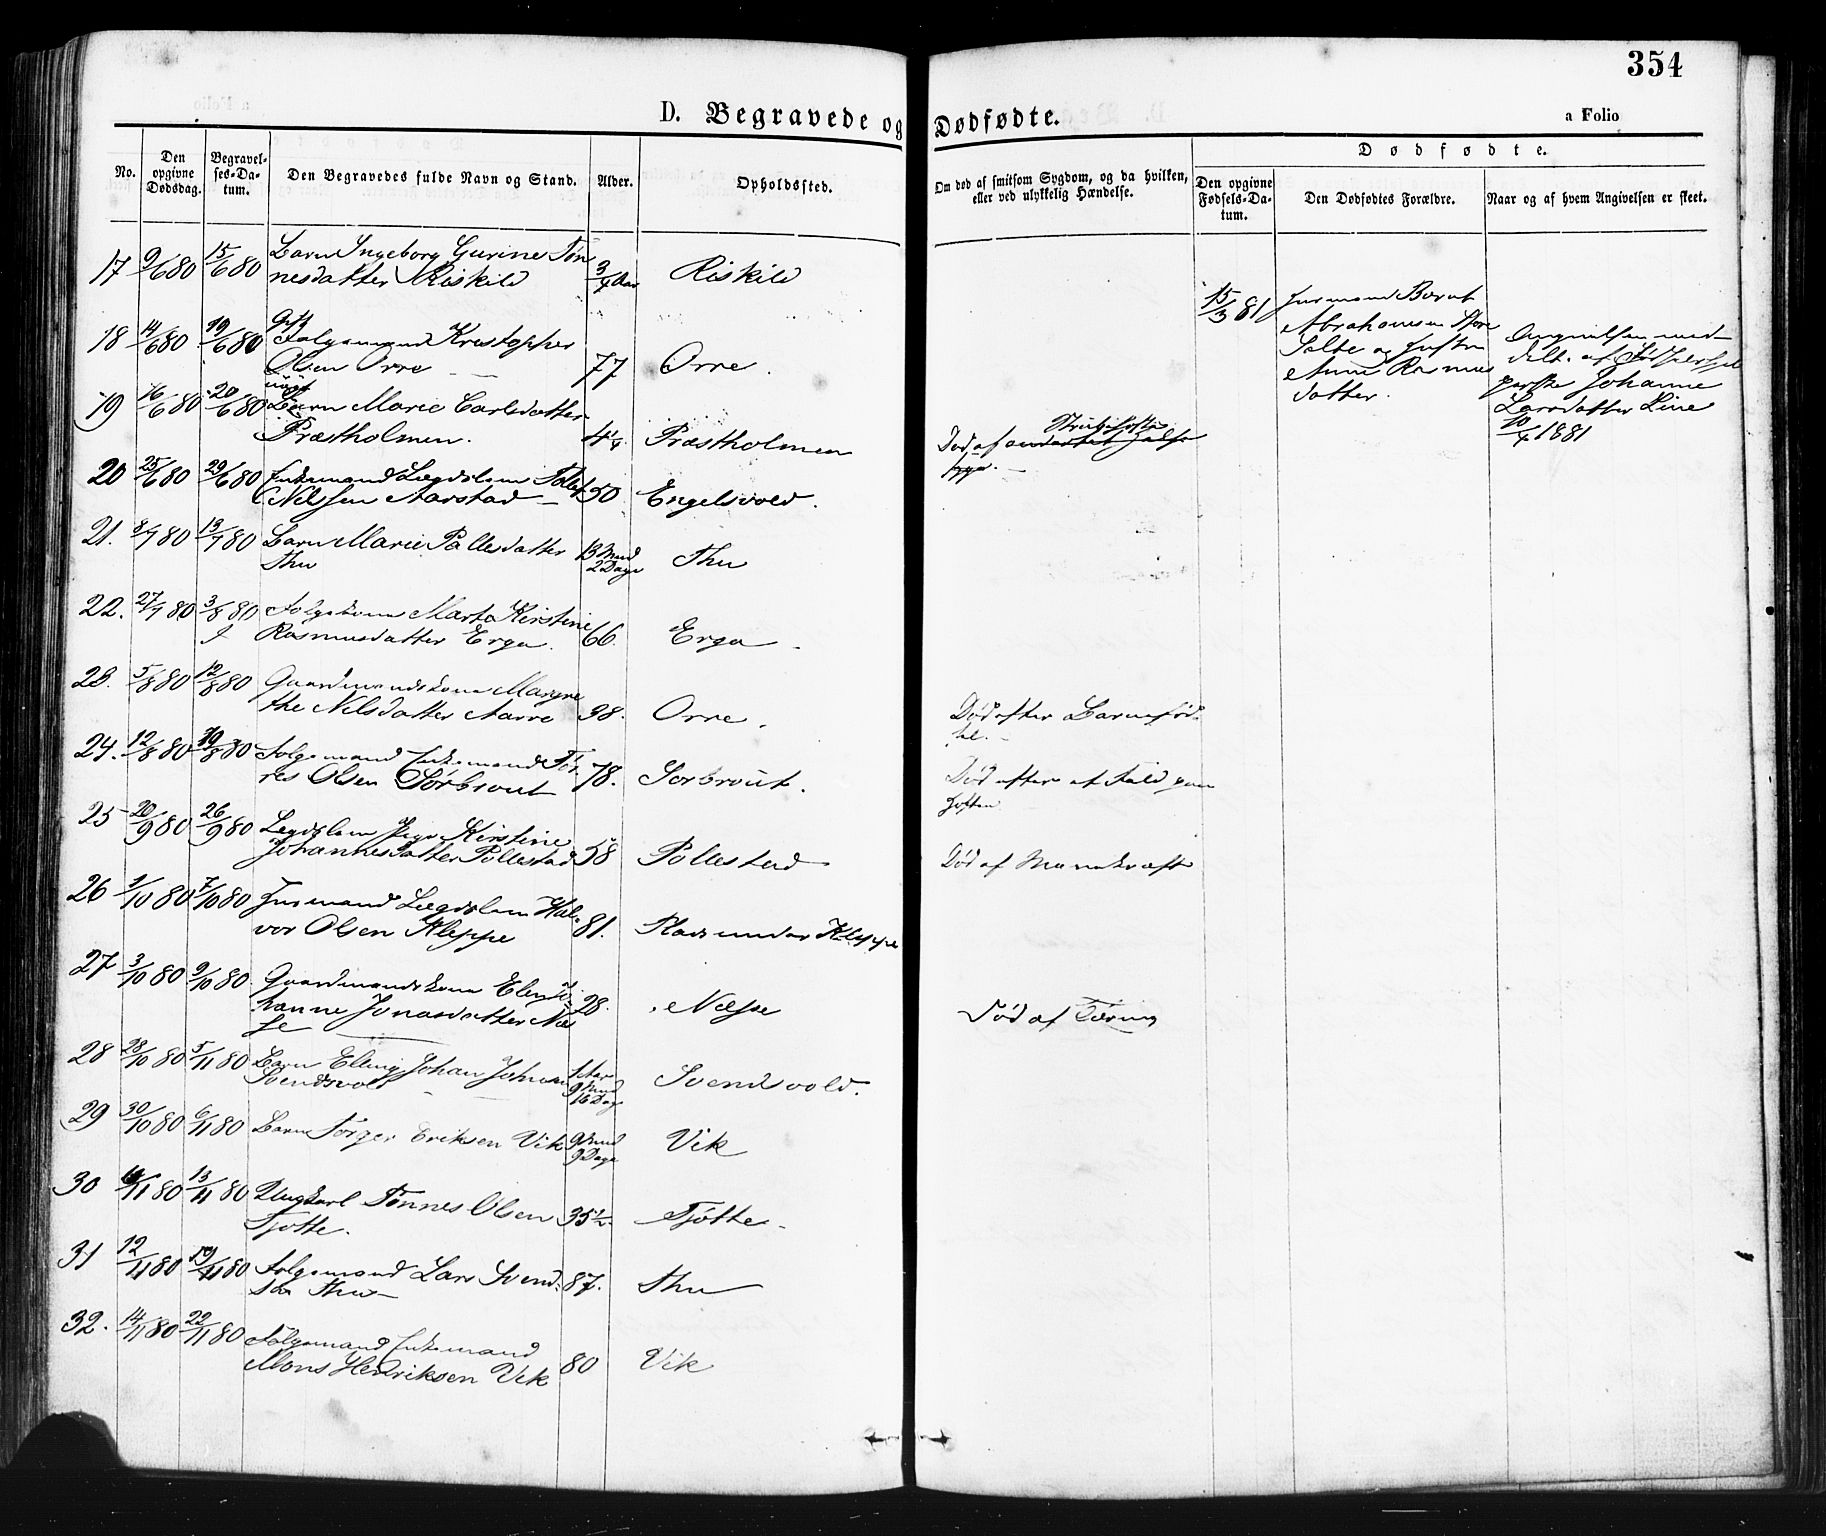 354
D. Begravede og Dødfødte.
a Folio
No.
Den opgivne Dødsdag.
Begravelses-Datum.
Den Begravedes fulde Navn og Stand.
Alder.
Opholdssted.
Om død af smitsom Sygdom, og da hvilken,
eller ved ulykkelig Hændelse.
Dødfødte.
Den opgivne Fødsels-Datum.
Den Dødfødtes Forældre.
Naar og af hvem Angivelsen er skeet.
17 9/6 80 15/6 80 Barn Ingeborg Gurine Tøn
nesdatter Riskild 3/4 Aar Riskild
15/3 81 Husmand Berut
Abrahamsen Store
Salte og Hustru
Anne Rasmus
datter.
Angivelsen med-
delt af
Johanne
Larsdatter Line
10/4 1881
18 14/6 80 19/6 80 Gift
Folgemand Kristopher
Olsen Orre 77 Orre.
19 16/6 80 20/6 80 uægt
Barn Marie Carlsdatter
Præstholmen. 4 1/4 Præstholmen
Strubehoste
Død af ondartet Halse
syge.
20 25/6 80 29/6 80 Enkemand Lægdslem Tollef
Nilssen Aarstad 50 Engelsvold.
21. 8/7 80 13/7 80 Barn Marie Pallesdatter
Thu 13 Mnd
2 Dage Thu
22. 27/7 80 3/8 80 Folgekone Marta Kirstine
Rasmusdatter Erga. 66 Erga.
23. 5/8 80 12/8 80 Gaardmandskone Margre
the Nilsdatter Aarre 38. Orre.
Død efter Barnefød-
sel.
24. 12/8 80 19/8 80 Folgemand Enkemand Tør
res Olsen Sørbrout 78. Sørbrout.
Død efter et Fald paa
Hoften
25 20/9 80 26/9 80 Legdslem Pige Kirstine
Johannesdatter Pollestad 58 Pollestad
Død af Mavekræft
26 1/10 80 7/10 80 Husmand Lægdslem Hal-
vor Olsen Kleppe 81. Plads under Kleppe
27 3/10 80 9/10 80. Gaardmandskone Elen Jo-
hanne Jonasdatter Næs
se 28. Næsse
Død af Tæring
28 28/10 80 5/11 80 Barn Elling Johan Johnsen
Svendsvold 1 Aar
9 Mnd
16 Dag Svendsvold.
29 30/10 80 6/11 80 Barn Tørger Eriksen Vik 9 Mnd
9 Dage Vik
30 6/11 80 13/11 80 Ungkarl Tønnes Olsen
Tjøtte. 35 1/2. Tjøtte.
31 12/11 80 19/11 80 Folgemand Lars Svend-
sen Thu 87. Thu
32. 14/11 80 22/11 80 Folgemand Enkemand
Mons Henriksen Vik 80 Vik